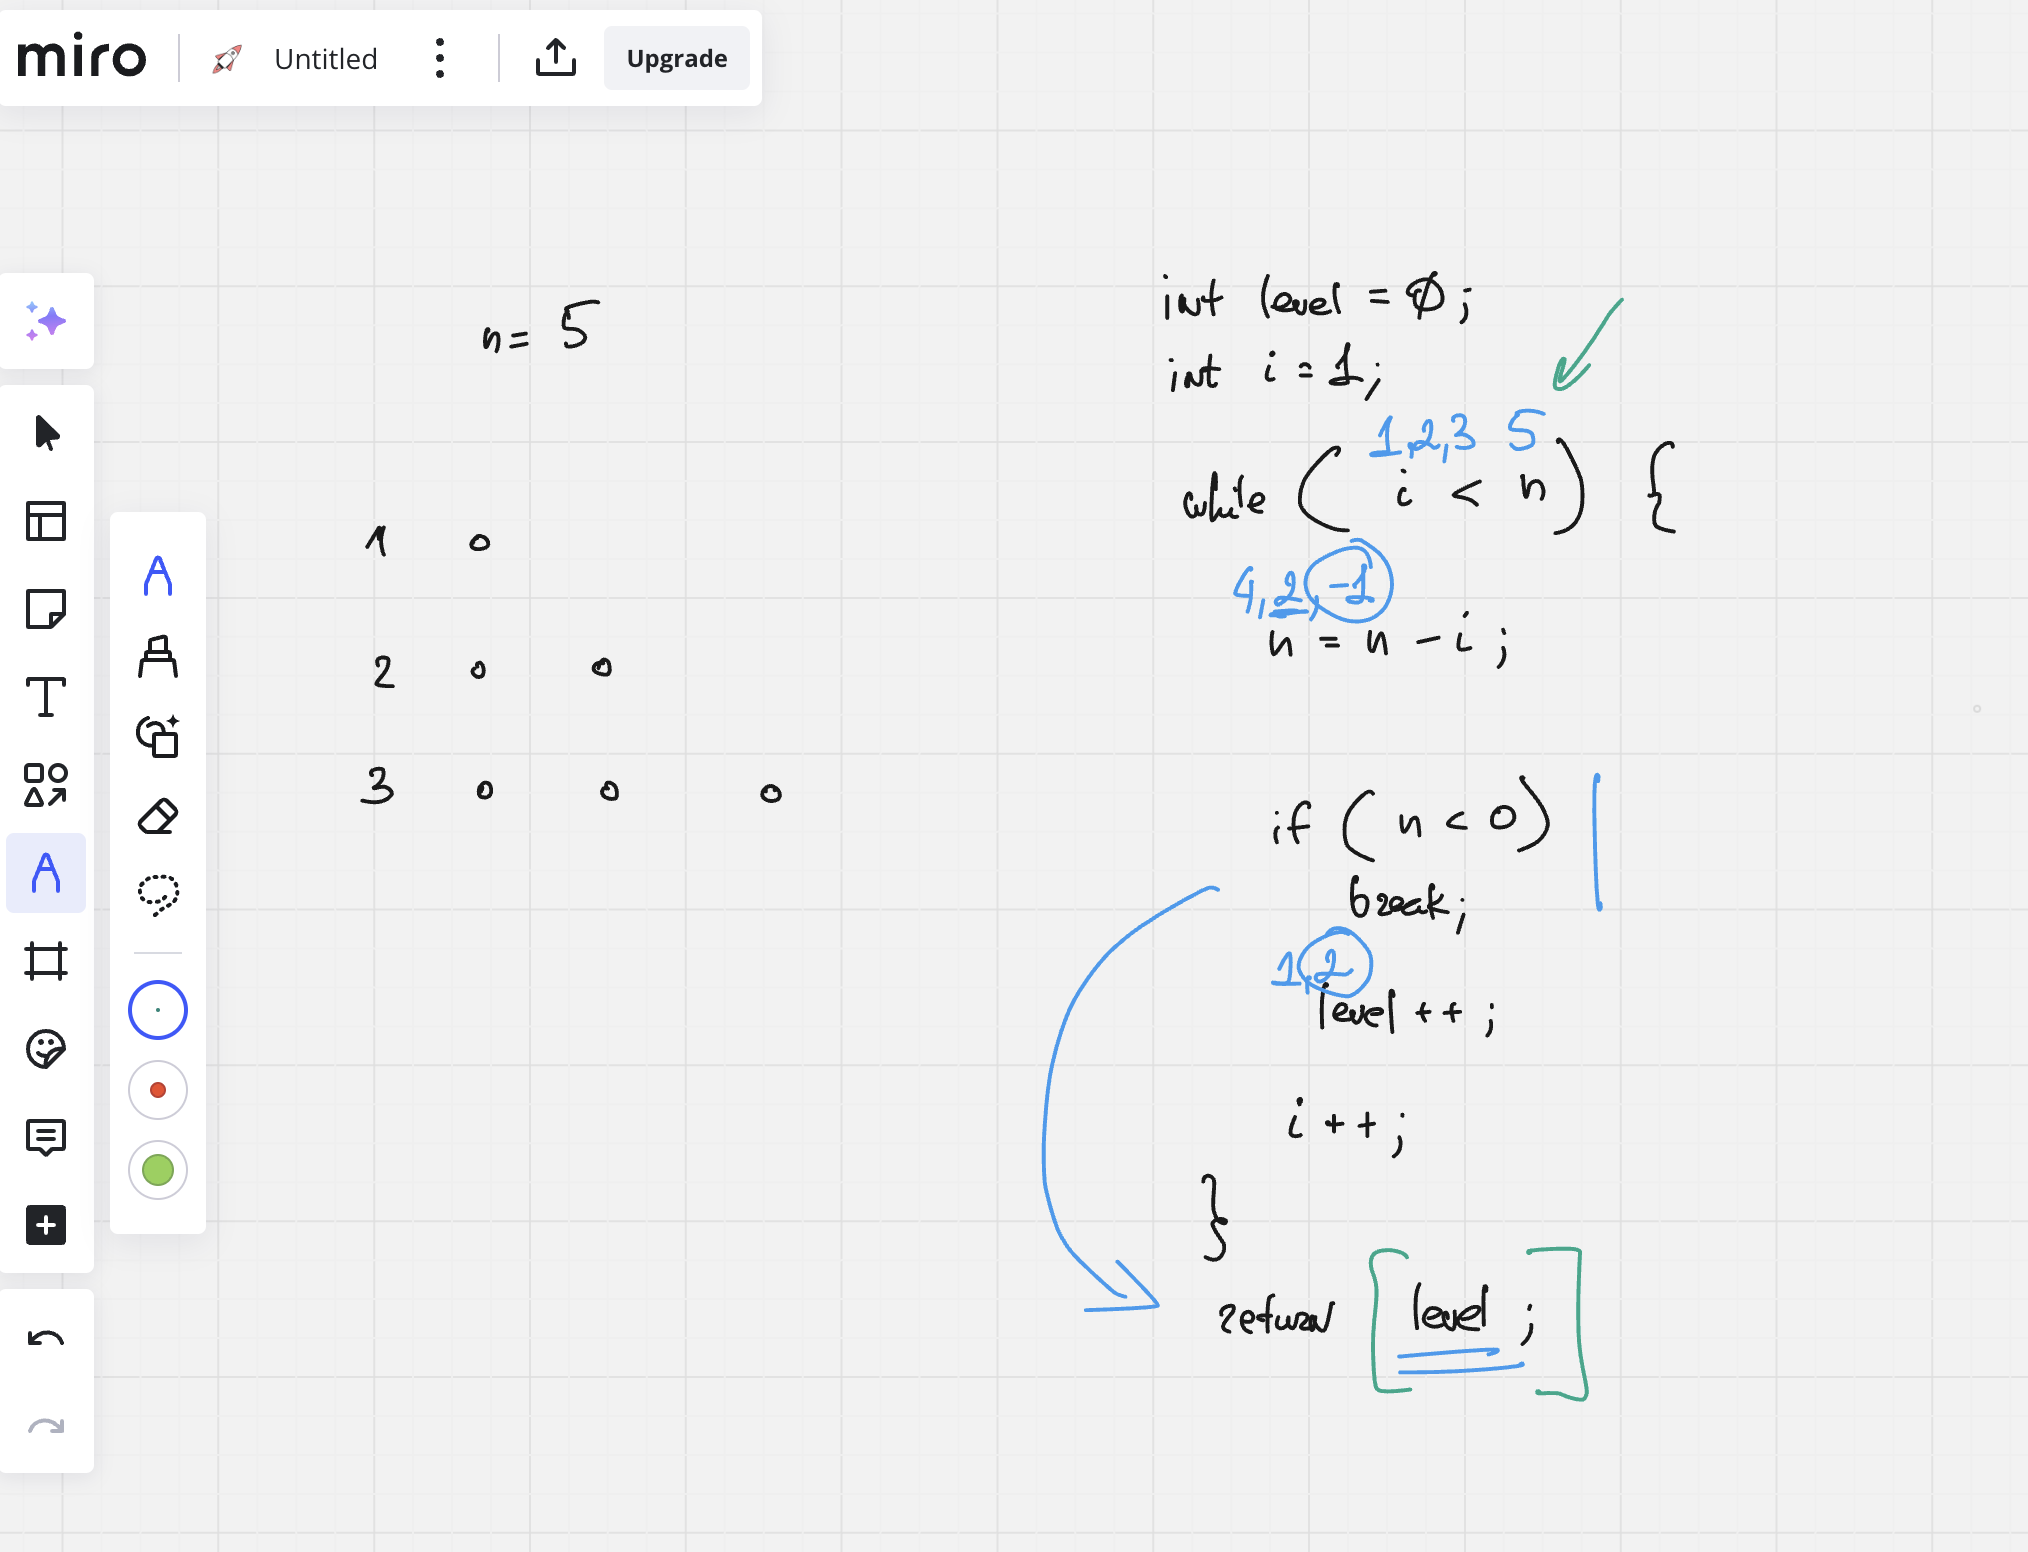 miro Untitled Upgrade
n = 5
1
2
3
int level = 0;
int i = 1;
1,2,3 5
while ( i < n ) {
4, 2, -1
n = n - i ;
if ( n < 0 )
break;
1, 2
level ++ ;
i ++ ;
}
return [ level ; ]